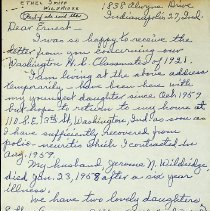 ETHEL SNIPP
WILDRIDGE
1838 Alvyne Drive
Indianapolis 27, Ind.
Dear Ernest –
I was so happy to receive the
letter from you concerning our
Washington H. S. Classmates of 1921.
I am living at the above address
temporarily – have been with
my youngest daughter since Oct. 1957
but hope to return to my home at
110 S.E. 3rd St., Washington, Ind. as soon as
I have sufficiently recovered from
polio-neuritis which I contracted in
Aug. 1957.
My husband Jerome N. Wildridge
died Jan. 23, 1958 after a six year
illness.
We have two lovely daughters,